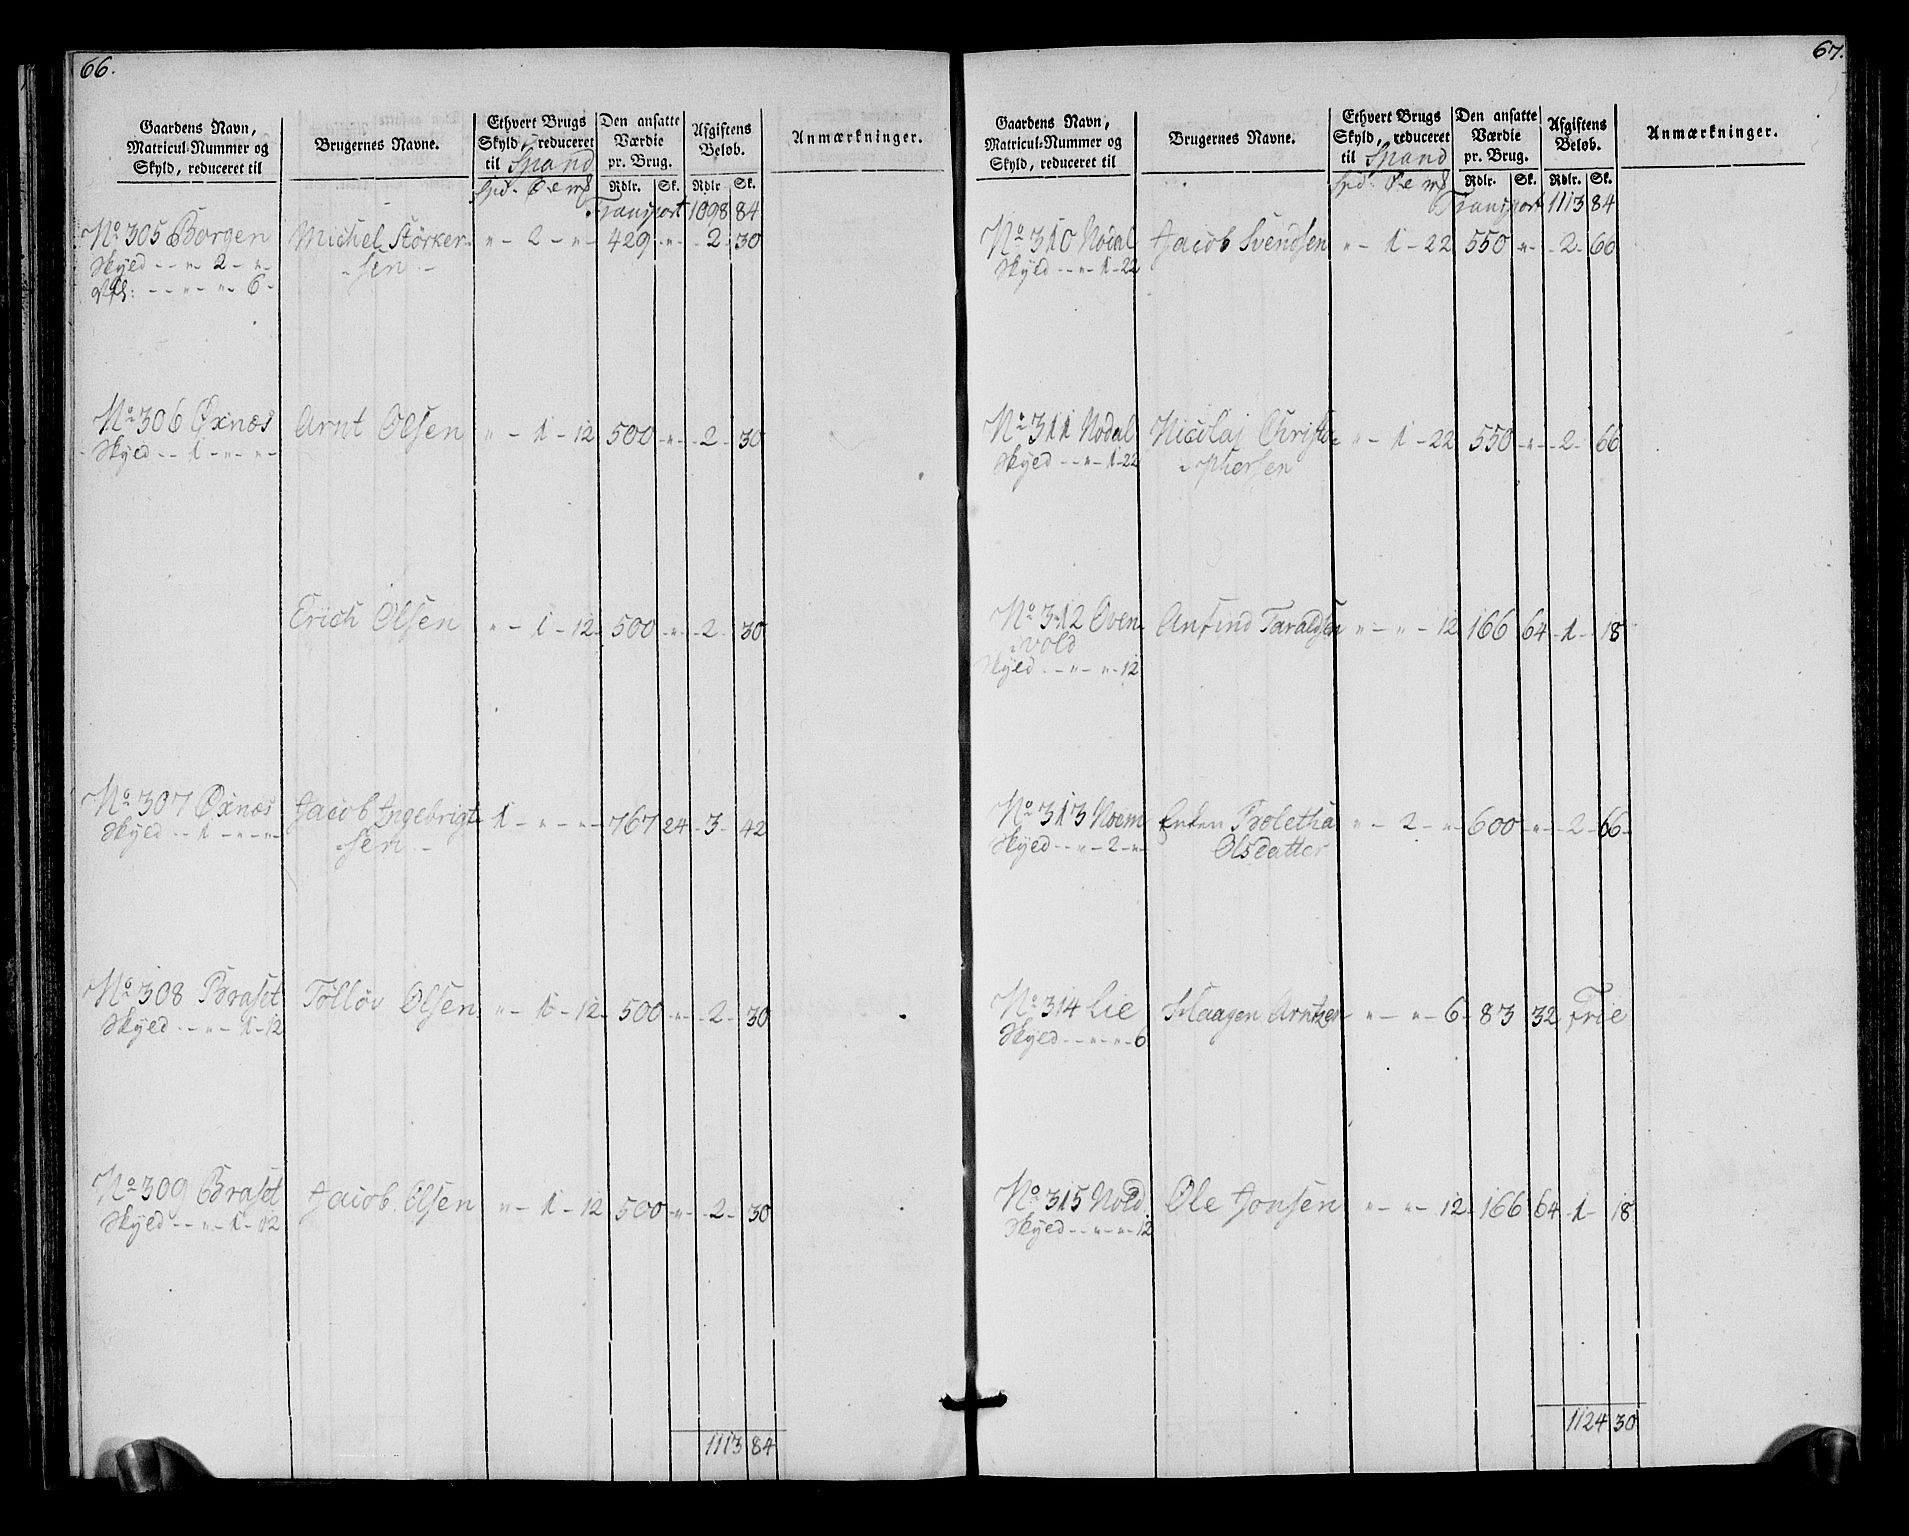 66.
Gaardens Navn, Matricul-Nummer og Skyld, reduceret til
Brugernes Navne.
Ethvert Brugs Skyld, reduceret til Spand
Den ansatte Værdie pr. Brug.
Afgiftens Beløb.
Anmærkninger.
Spd. Øe mß Rdlr. Sk. Rdlr. Sk.
Transport 1098 84
No 305 Borgen Michel Störker- " - 2 - " - 429 - " - 2 - 30
Skyld - - " - 2 - " - sen -
- - " - " - 6 -
No 306 Øxnæs Arnt Olsen " - 1 - 12 500 - " - 2 - 30
Skyld - - 1 - " - " -
Erich Olsen " - 1 - 12 500 - " - 2 - 30
No 307 Øxnæs Jacob Ingebrigt- 1 - " - " - 767 24 - 3 - 42
Skyld - - 1 - " - " - sen -
No 308 Braset Tölløv Olsen " - 1 - 12 500 - " - 2 - 30
Skyld - - " - 1 - 12
No 309 Braset Jacob Olsen " - 1 - 12 500 - " - 2 - 30
Skyld - - " - 1 - 12
1113 84
67.
Gaardens Navn, Matricul-Nummer og Skyld, reduceret til
Brugernes Navne.
Ethvert Brugs Skyld, reduceret til Spand
Den ansatte Værdie pr. Brug.
Afgiftens Beløb.
Anmærkninger.
Spd. Øe mß Rdlr. Sk. Rdlr. Sk.
Transport 1113 84
No 310 Nodal Jacob Svendsen " - 1 - 22 550 - " - 2 - 66
Skyld - - " - 1 - 22
No 311 Nodal Nicolaj Christo- " - 1 - 22 550 - " - 2 - 66
Skyld - - " - 1 - 22 phersen
No 312 Oven- Anfind Taraldsen " - " - 12 166 64 - 1 - 18
vold
Skyld - - " - " - 12
No 313 Noem Enken Broletha " - 2 - " - 600 - " - 2 - 66
Skyld - - " - 2 - " - Olsdatter
No 314 Lie Haagen Arntzen " - " - 6 - 83 32 Frie
Skyld - - " - " - 6
No 315 Nold Ole Jonsen " - " - 12 - 166 64 - 1 - 18
Skyld - - " - " - 12
1124 30